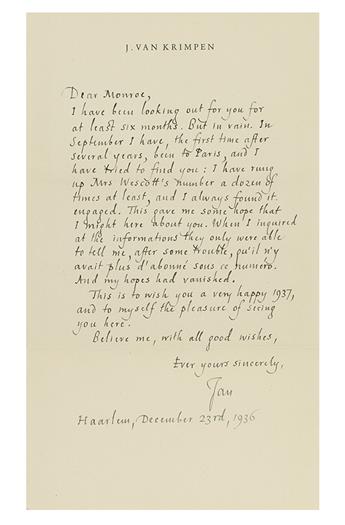 J. VAN KRIMPEN
Dear Monroe,
I have been looking out for you for
at least six months. But in vain. In
September I have, the first time after
several years, been to Paris, and I
have tried to find you: I have rung
up Mrs Wescott's number a dozen of
times at least, and I always found it
engaged. This gave me some hope that
I might here about you. When I inquired
at the informations they only were able
to tell me, after some trouble, qu'il n'y
avait plus d'abonné sous ce numéro.
And my hopes had vanished.
This is to wish you a very happy 1937,
and to myself the pleasure of seeing
you here.
Believe me, with all good wishes,
Ever yours sincerely,
Jan
Haarlem, December 23rd, 1936